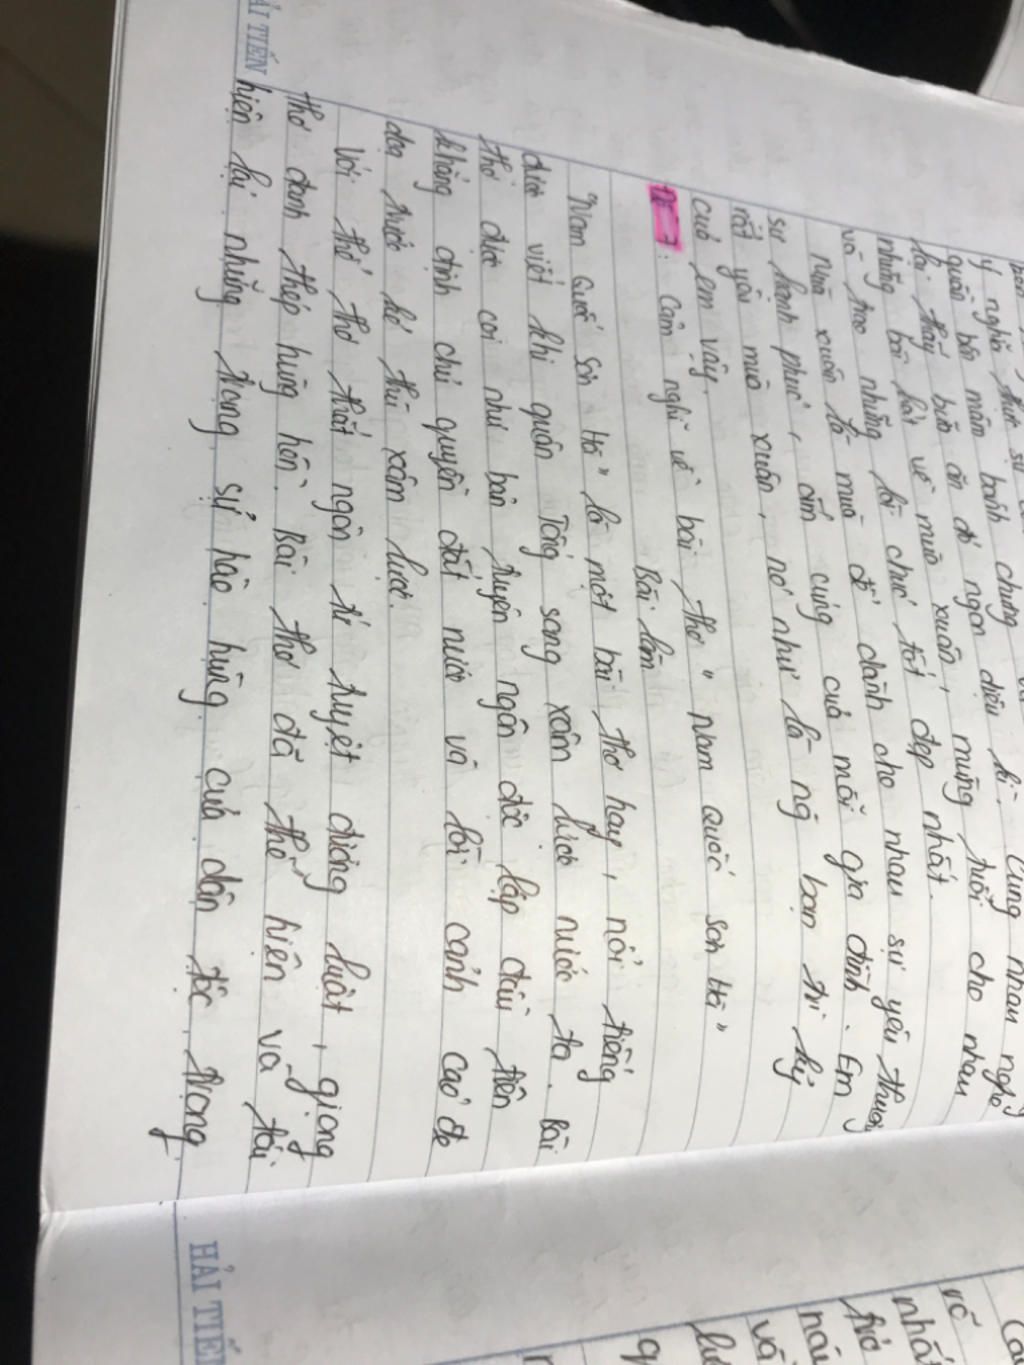 ý nghĩa thực sự
quần bên mâm bánh chưng
lại thấy bữa ăn đó ngon diệu kì. Cùng nhau nghe
những bài hát về mùa xuân, mừng tuổi cho nhau
và trao những lời chúc tốt đẹp nhất.
Mùa xuân là mùa để dành cho nhau sự yêu thương
sự hạnh phúc, ấm cúng của mỗi gia đình. Em
rất yêu mùa xuân, nó như là ng bạn tri kỷ
của em vậy.
Đề 7: Cảm nghĩ về bài thơ "Nam quốc sơn Hà"
Bài làm
"Nam Quốc Sơn Hà" là một bài thơ hay, nổi tiếng
được viết khi quân Tống sang xâm lược nước ta. Bài
thơ được coi như bản tuyên ngôn độc lập đầu tiên
khẳng định chủ quyền đất nước và lời cảnh cáo đe
dọa trước kẻ thù xâm lược.
Với thể thơ thất ngôn tứ tuyệt đường luật, giọng
thơ đanh thép hùng hồn. Bài thơ đã thể hiện và tái
hiện lại những trang sử hào hùng của dân tộc, trong
HẢI TIẾN
HẢI TIẾ